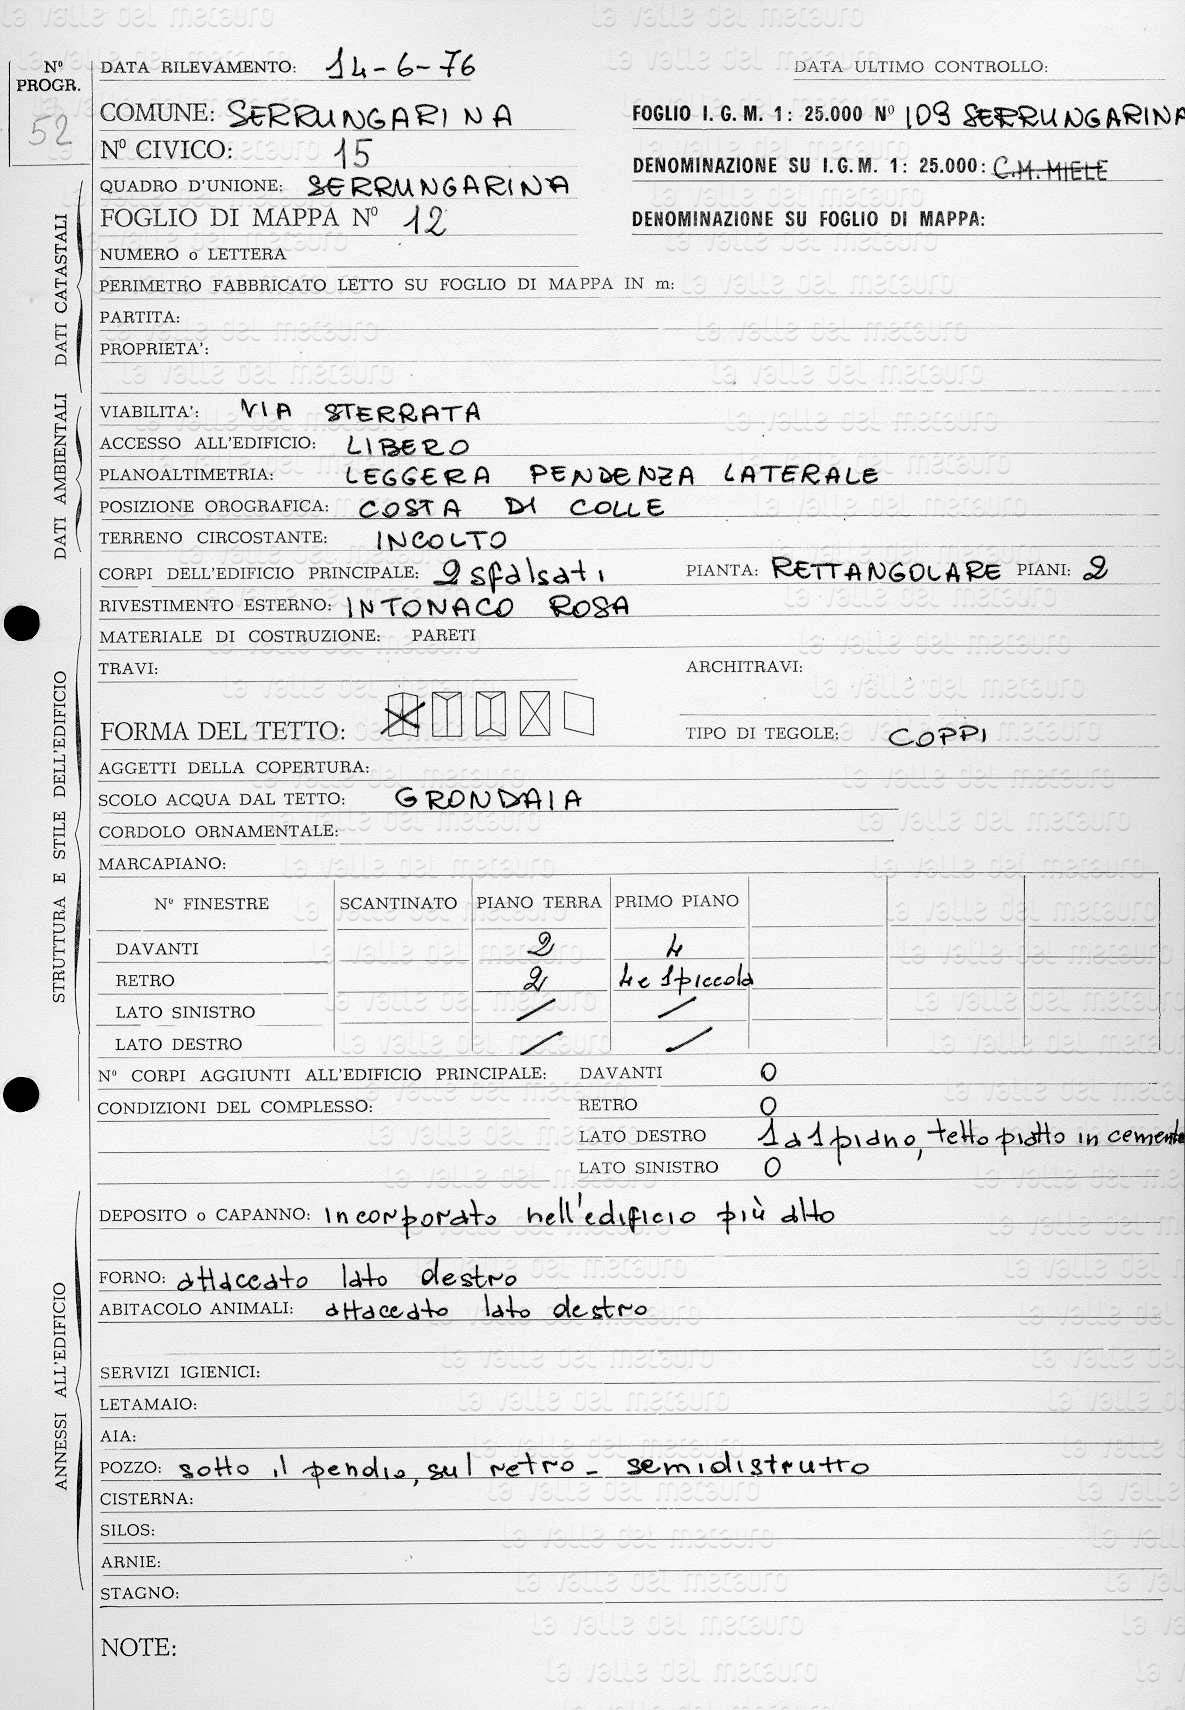 Nº PROGR. 52
DATA RILEVAMENTO: 14-6-76
DATA ULTIMO CONTROLLO:
COMUNE: SERRUNGARINA
FOGLIO I.G.M. 1: 25.000 Nº 109 SERRUNGARINA
Nº CIVICO: 15
DENOMINAZIONE SU I.G.M. 1: 25.000: C.M. MIELE
QUADRO D'UNIONE: SERRUNGARINA
FOGLIO DI MAPPA Nº 12
DENOMINAZIONE SU FOGLIO DI MAPPA:
DATI CATASTALI
NUMERO o LETTERA
PERIMETRO FABBRICATO LETTO SU FOGLIO DI MAPPA IN m:
PARTITA:
PROPRIETA':
DATI AMBIENTALI
VIABILITA': VIA STERRATA
ACCESSO ALL'EDIFICIO: LIBERO
PLANOALTIMETRIA: LEGGERA PENDENZA LATERALE
POSIZIONE OROGRAFICA: COSTA DI COLLE
TERRENO CIRCOSTANTE: INCOLTO
STRUTTURA E STILE DELL'EDIFICIO
CORPI DELL'EDIFICIO PRINCIPALE: 2 sfalsati PIANTA: RETTANGOLARE PIANI: 2
RIVESTIMENTO ESTERNO: INTONACO ROSA
MATERIALE DI COSTRUZIONE: PARETI
TRAVI: ARCHITRAVI:
FORMA DEL TETTO: TIPO DI TEGOLE: COPPI
AGGETTI DELLA COPERTURA:
SCOLO ACQUA DAL TETTO: GRONDAIA
CORDOLO ORNAMENTALE:
MARCAPIANO:
Nº FINESTRE SCANTINATO PIANO TERRA PRIMO PIANO
DAVANTI 2 4
RETRO 2 4 e 1 piccola
LATO SINISTRO / /
LATO DESTRO / /
Nº CORPI AGGIUNTI ALL'EDIFICIO PRINCIPALE: DAVANTI 0
CONDIZIONI DEL COMPLESSO: RETRO 0
LATO DESTRO 1 a 1 piano, tetto piatto in cemento
LATO SINISTRO 0
ANNESSI ALL'EDIFICIO
DEPOSITO o CAPANNO: incorporato nell'edificio più alto
FORNO: attaccato lato destro
ABITACOLO ANIMALI: attaccato lato destro
SERVIZI IGIENICI:
LETAMAIO:
AIA:
POZZO: sotto il pendio, sul retro - semidistrutto
CISTERNA:
SILOS:
ARNIE:
STAGNO:
NOTE:
la valle del metauro